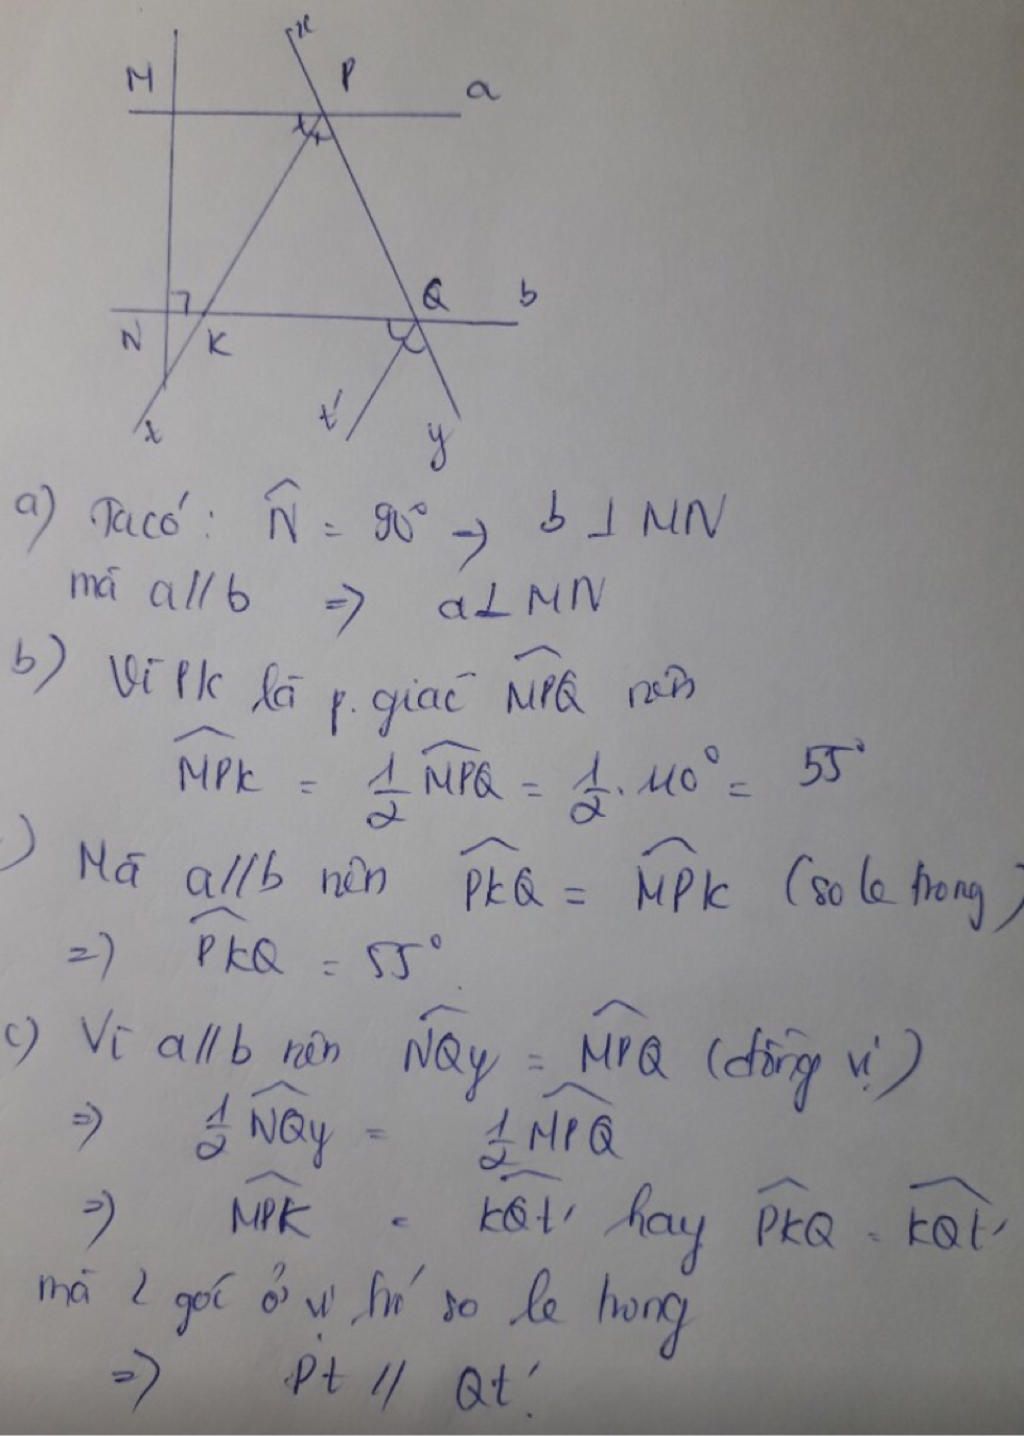 x
M P a
Q b
N K
t t' y
a) Ta có: N̂ = 90° → b ⊥ MN
mà a//b => a ⊥ MN
b) Vì PK là p.giác \widehat{MPQ} nên
\widehat{MPK} = 1/2 \widehat{MPQ} = 1/2 . 110° = 55°
) Mà a//b nên \widehat{PKQ} = \widehat{MPK} (so le trong)
=> \widehat{PKQ} = 55°.
c) Vì a//b nên \widehat{NQy} = \widehat{MPQ} (đồng vị)
=> 1/2 \widehat{NQy} = 1/2 \widehat{MPQ}
=> \widehat{MPK} = \widehat{KQt'} hay \widehat{PKQ} = \widehat{KQt'}
mà 2 góc ở vị trí so le trong
=> Pt // Qt'.